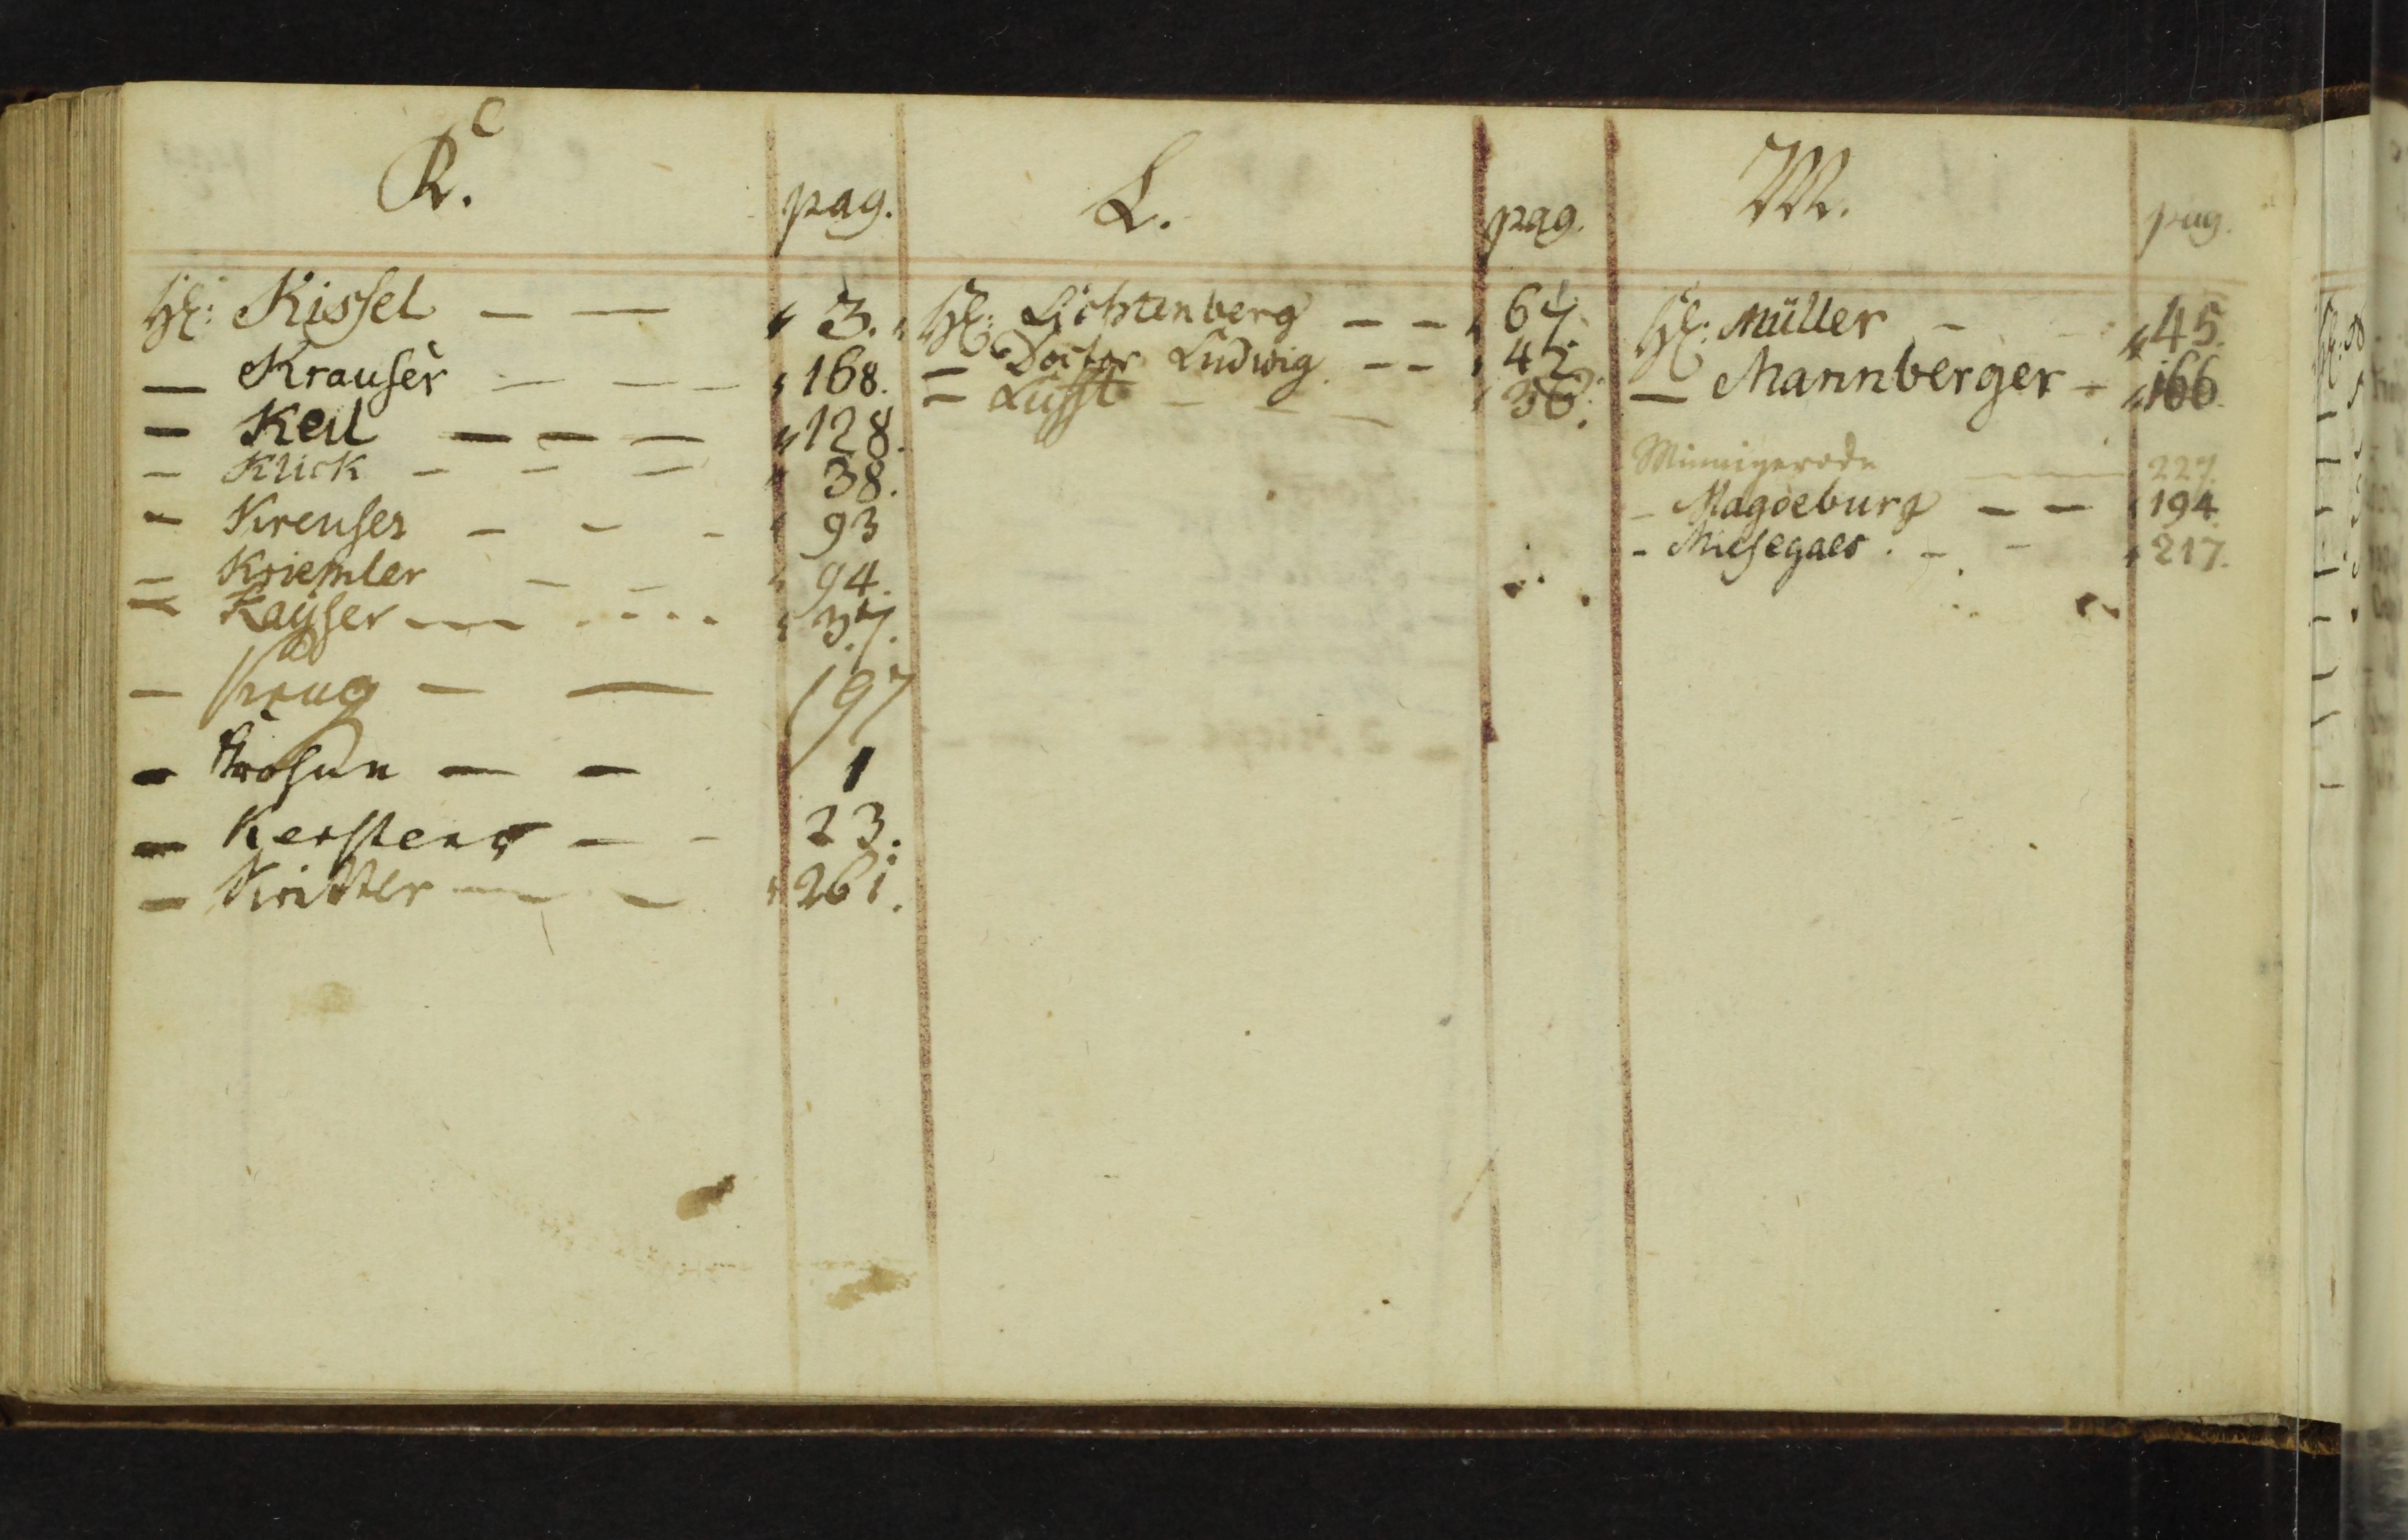 K.
pag.
Hr: Kissel — — " 3.
— Krauser — — — " 168.
— Keil — — — " 128.
— Klick — — — " 38.
— Kreuser — — — " 93
— Kriemler — — " 94.
— Kayser — — " 37.
— Krug — — 197
— — — 1
— Kerstens — — 23.
— Kritter — — " 261.
L.
pag.
Hr: Lichtenberg — — " 67.
— Doctor Ludwig — — " 42.
— Lufft — — — " 36.
M.
pag.
Hr: Müller — — " 45.
— Mannberger — " 166.
Minnigerode — 227.
— Magdeburg — — " 194.
— Miesegaes — — " 217.